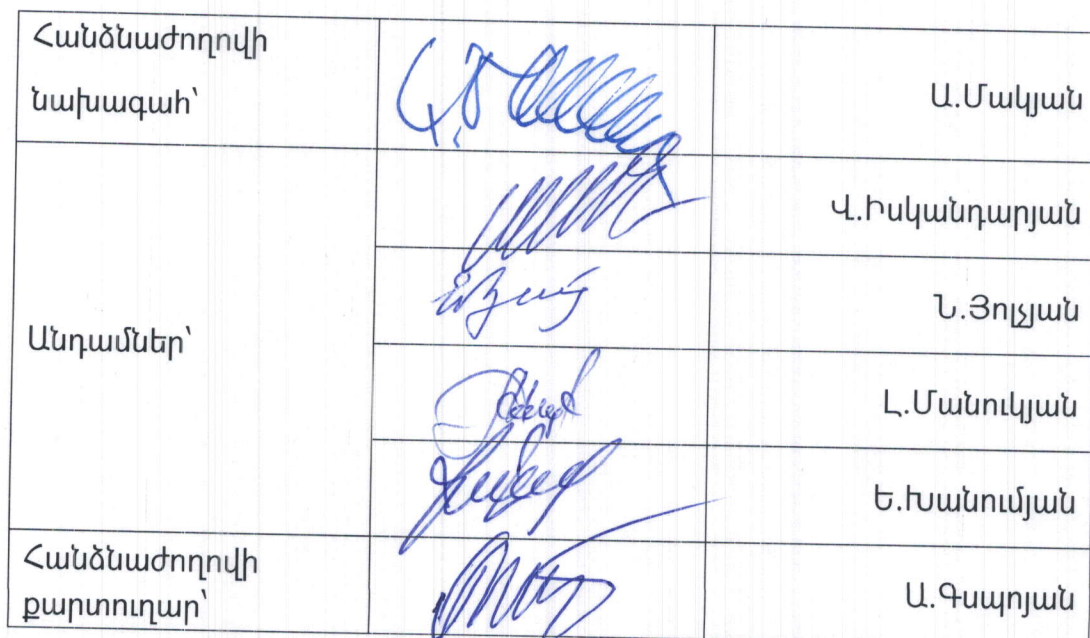 Հանձնաժողովի
նախագահ՝
Ա.Մակյան
Անդամներ՝
Վ.Իսկանդարյան
Ն.Յոլչյան
Լ.Մանուկյան
Ե.Խանումյան
Հանձնաժողովի
քարտուղար՝
Ա.Գսպոյան